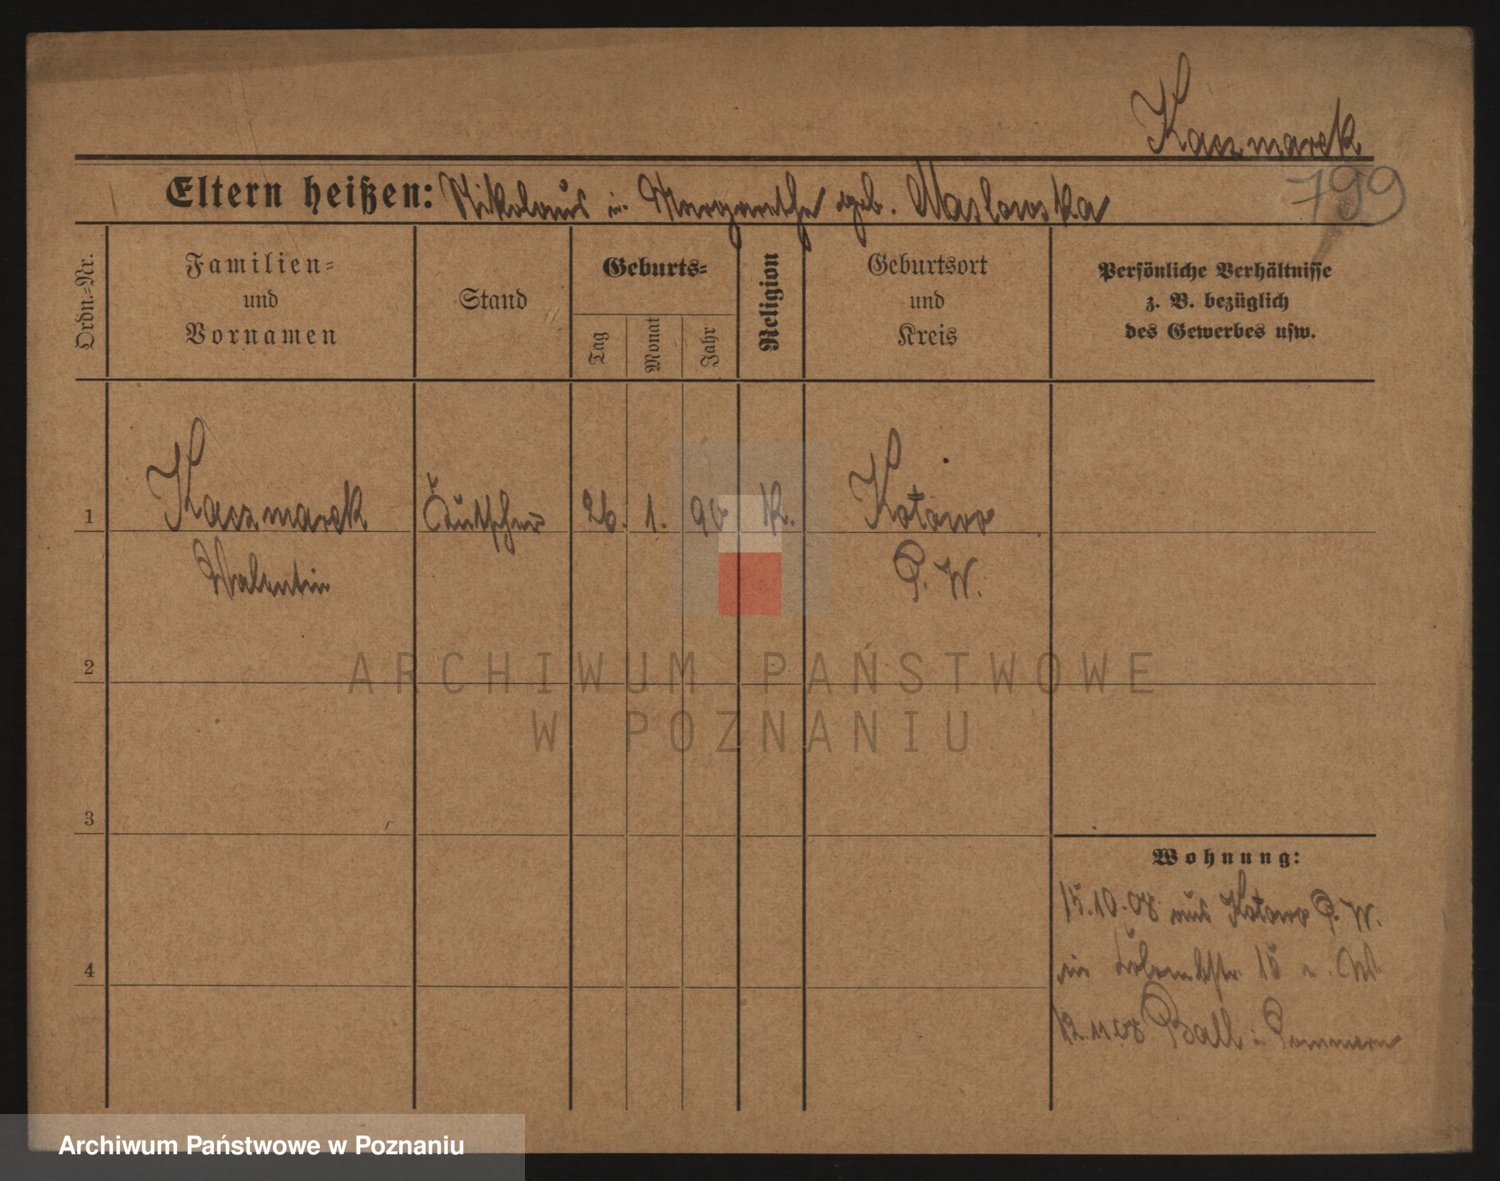 Kaczmarek
799
Eltern heißen: Nikolaus u. Margarethe geb. Maslowska
Ordn.=Nr.
Familien=
und
Vornamen
Stand
Geburts=
Tag
Monat
Jahr
Religion
Geburtsort
und
Kreis
Persönliche Verhältnisse
z. B. bezüglich
des Gewerbes usw.
1
Kaczmarek
Valentin
26. 1. 90
K.
Kotowo
P. W.
2
ARCHIWUM PAŃSTWOWE
W POZNANIU
3
4
Wohnung:
15.10.08 aus Kotowo P. W.
15
12.11.08 Ball i. Pommern
Archiwum Państwowe w Poznaniu